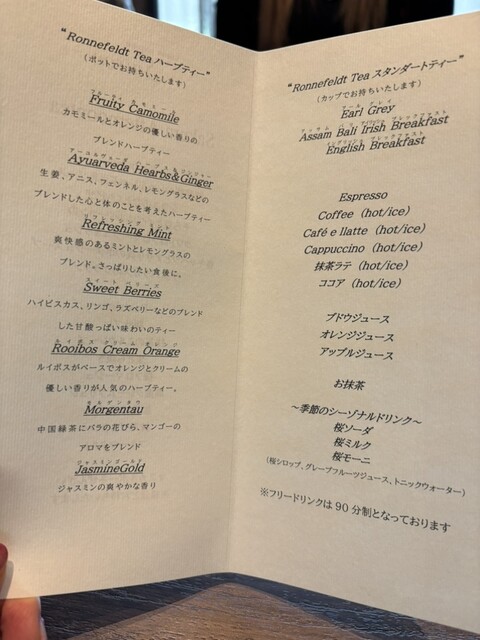 “Ronnefeldt Tea ハーブティー”
(ポットでお持ちいたします)
Fruity Camomile
カモミールとオレンジの優しい香りの
ブレンドハーブティー
Ayuarveda Hearbs&Ginger
生姜、アニス、フェンネル、レモングラスなどの
ブレンドした心と体のことを考えたハーブティー
リフレッシング ミント
Refreshing Mint
爽快感のあるミントとレモングラスの
ブレンド。さっぱりしたい食後に。
スイート ベリーズ
Sweet Berries
ハイビスカス、リンゴ、ラズベリーなどのブレンド
した甘酸っぱい味わいのティー
ルイボス クリーム オレンジ
Rooibos Cream Orange
ルイボスがベースでオレンジとクリームの
優しい香りが人気のハーブティー。
モルゲンタウ
Morgentau
中国緑茶にバラの花びら、マンゴーの
アロマをブレンド
ジャスミンゴールド
JasmineGold
ジャスミンの爽やかな香り
“Ronnefeldt Tea スタンダートティー”
(カップでお持ちいたします)
アール グレイ
Earl Grey
Assam Bali Irish Breakfast
English Breakfast
Espresso
Coffee (hot/ice)
Café e llatte (hot/ice)
Cappuccino (hot/ice)
抹茶ラテ (hot/ice)
ココア (hot/ice)
ブドウジュース
オレンジジュース
アップルジュース
お抹茶
～季節のシーゾナルドリンク～
桜ソーダ
桜ミルク
桜モーニ
(桜シロップ、グレープフルーツジュース、トニックウォーター)
※フリードリンクは 90 分制となっております